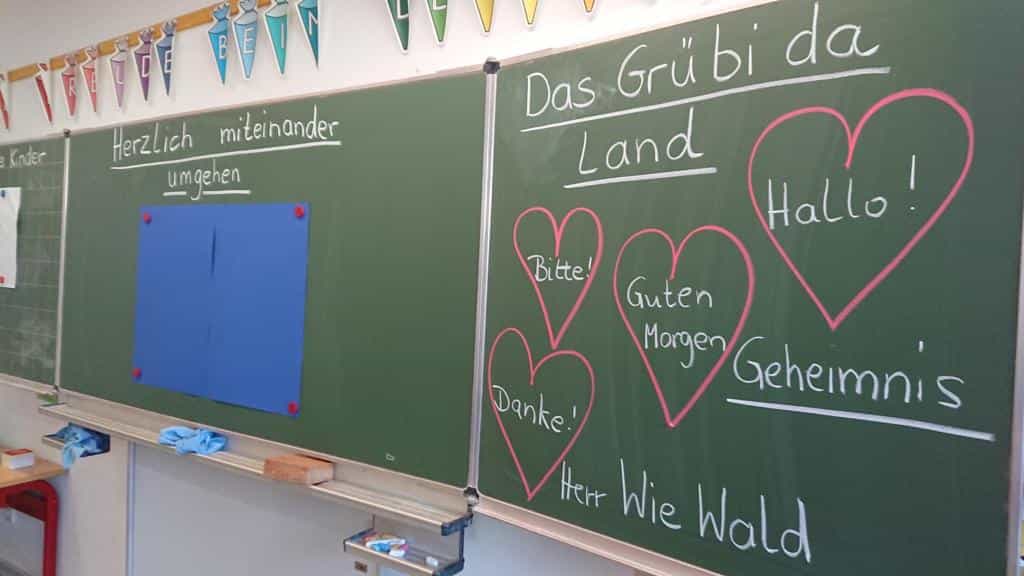 BEIM
Kinder
Herzlich miteinander
umgehen
Das Grübi da
Land
Hallo!
Bitte!
Guten
Morgen
Danke!
Geheimnis
Herr Wie Wald